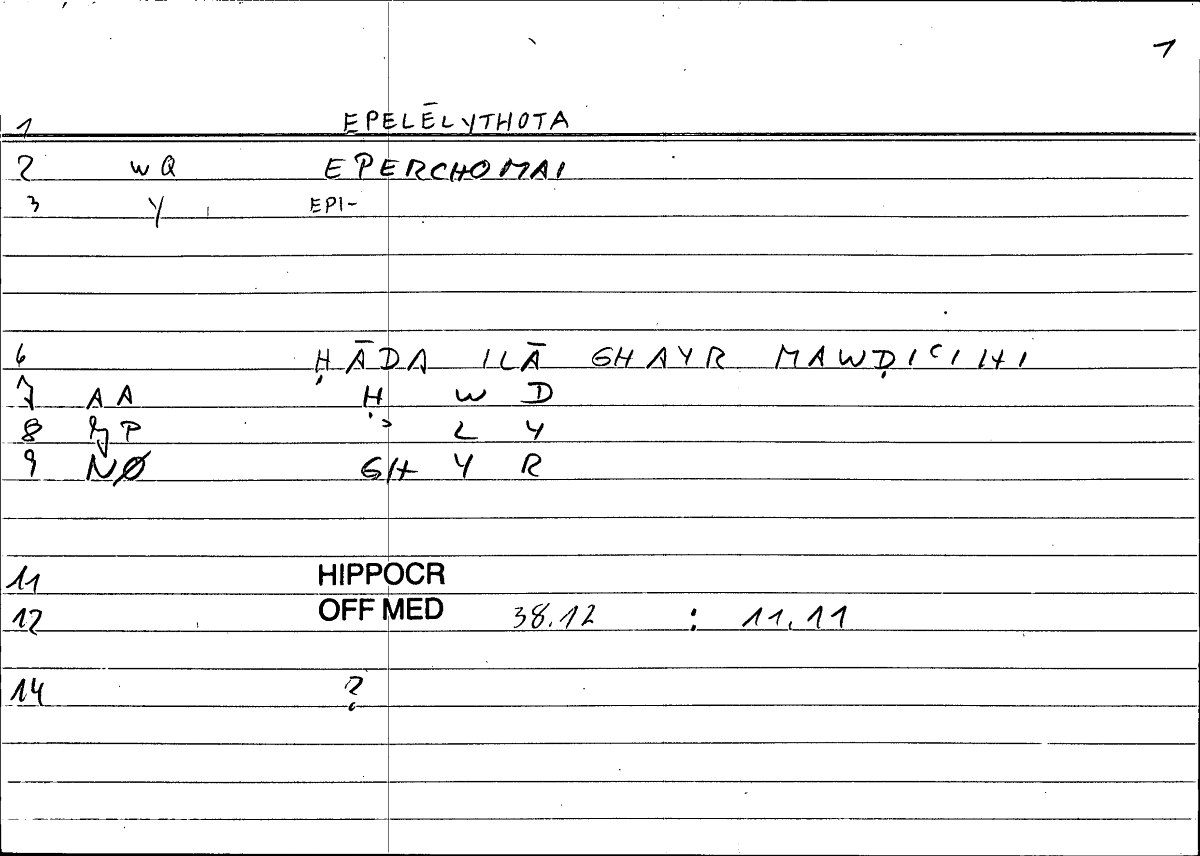 1
1 EPELĒLYTHOTA
2 WQ EPERCHOMAI
3 Y EPI-
6 ḤĀDA ILĀ GHAYR MAWḌIʿIHI
7 AA Ḥ W D
8 P ʾ L Y
9 NØ GH Y R
11 HIPPOCR
12 OFF MED 38.12 : 11,11
14 ?